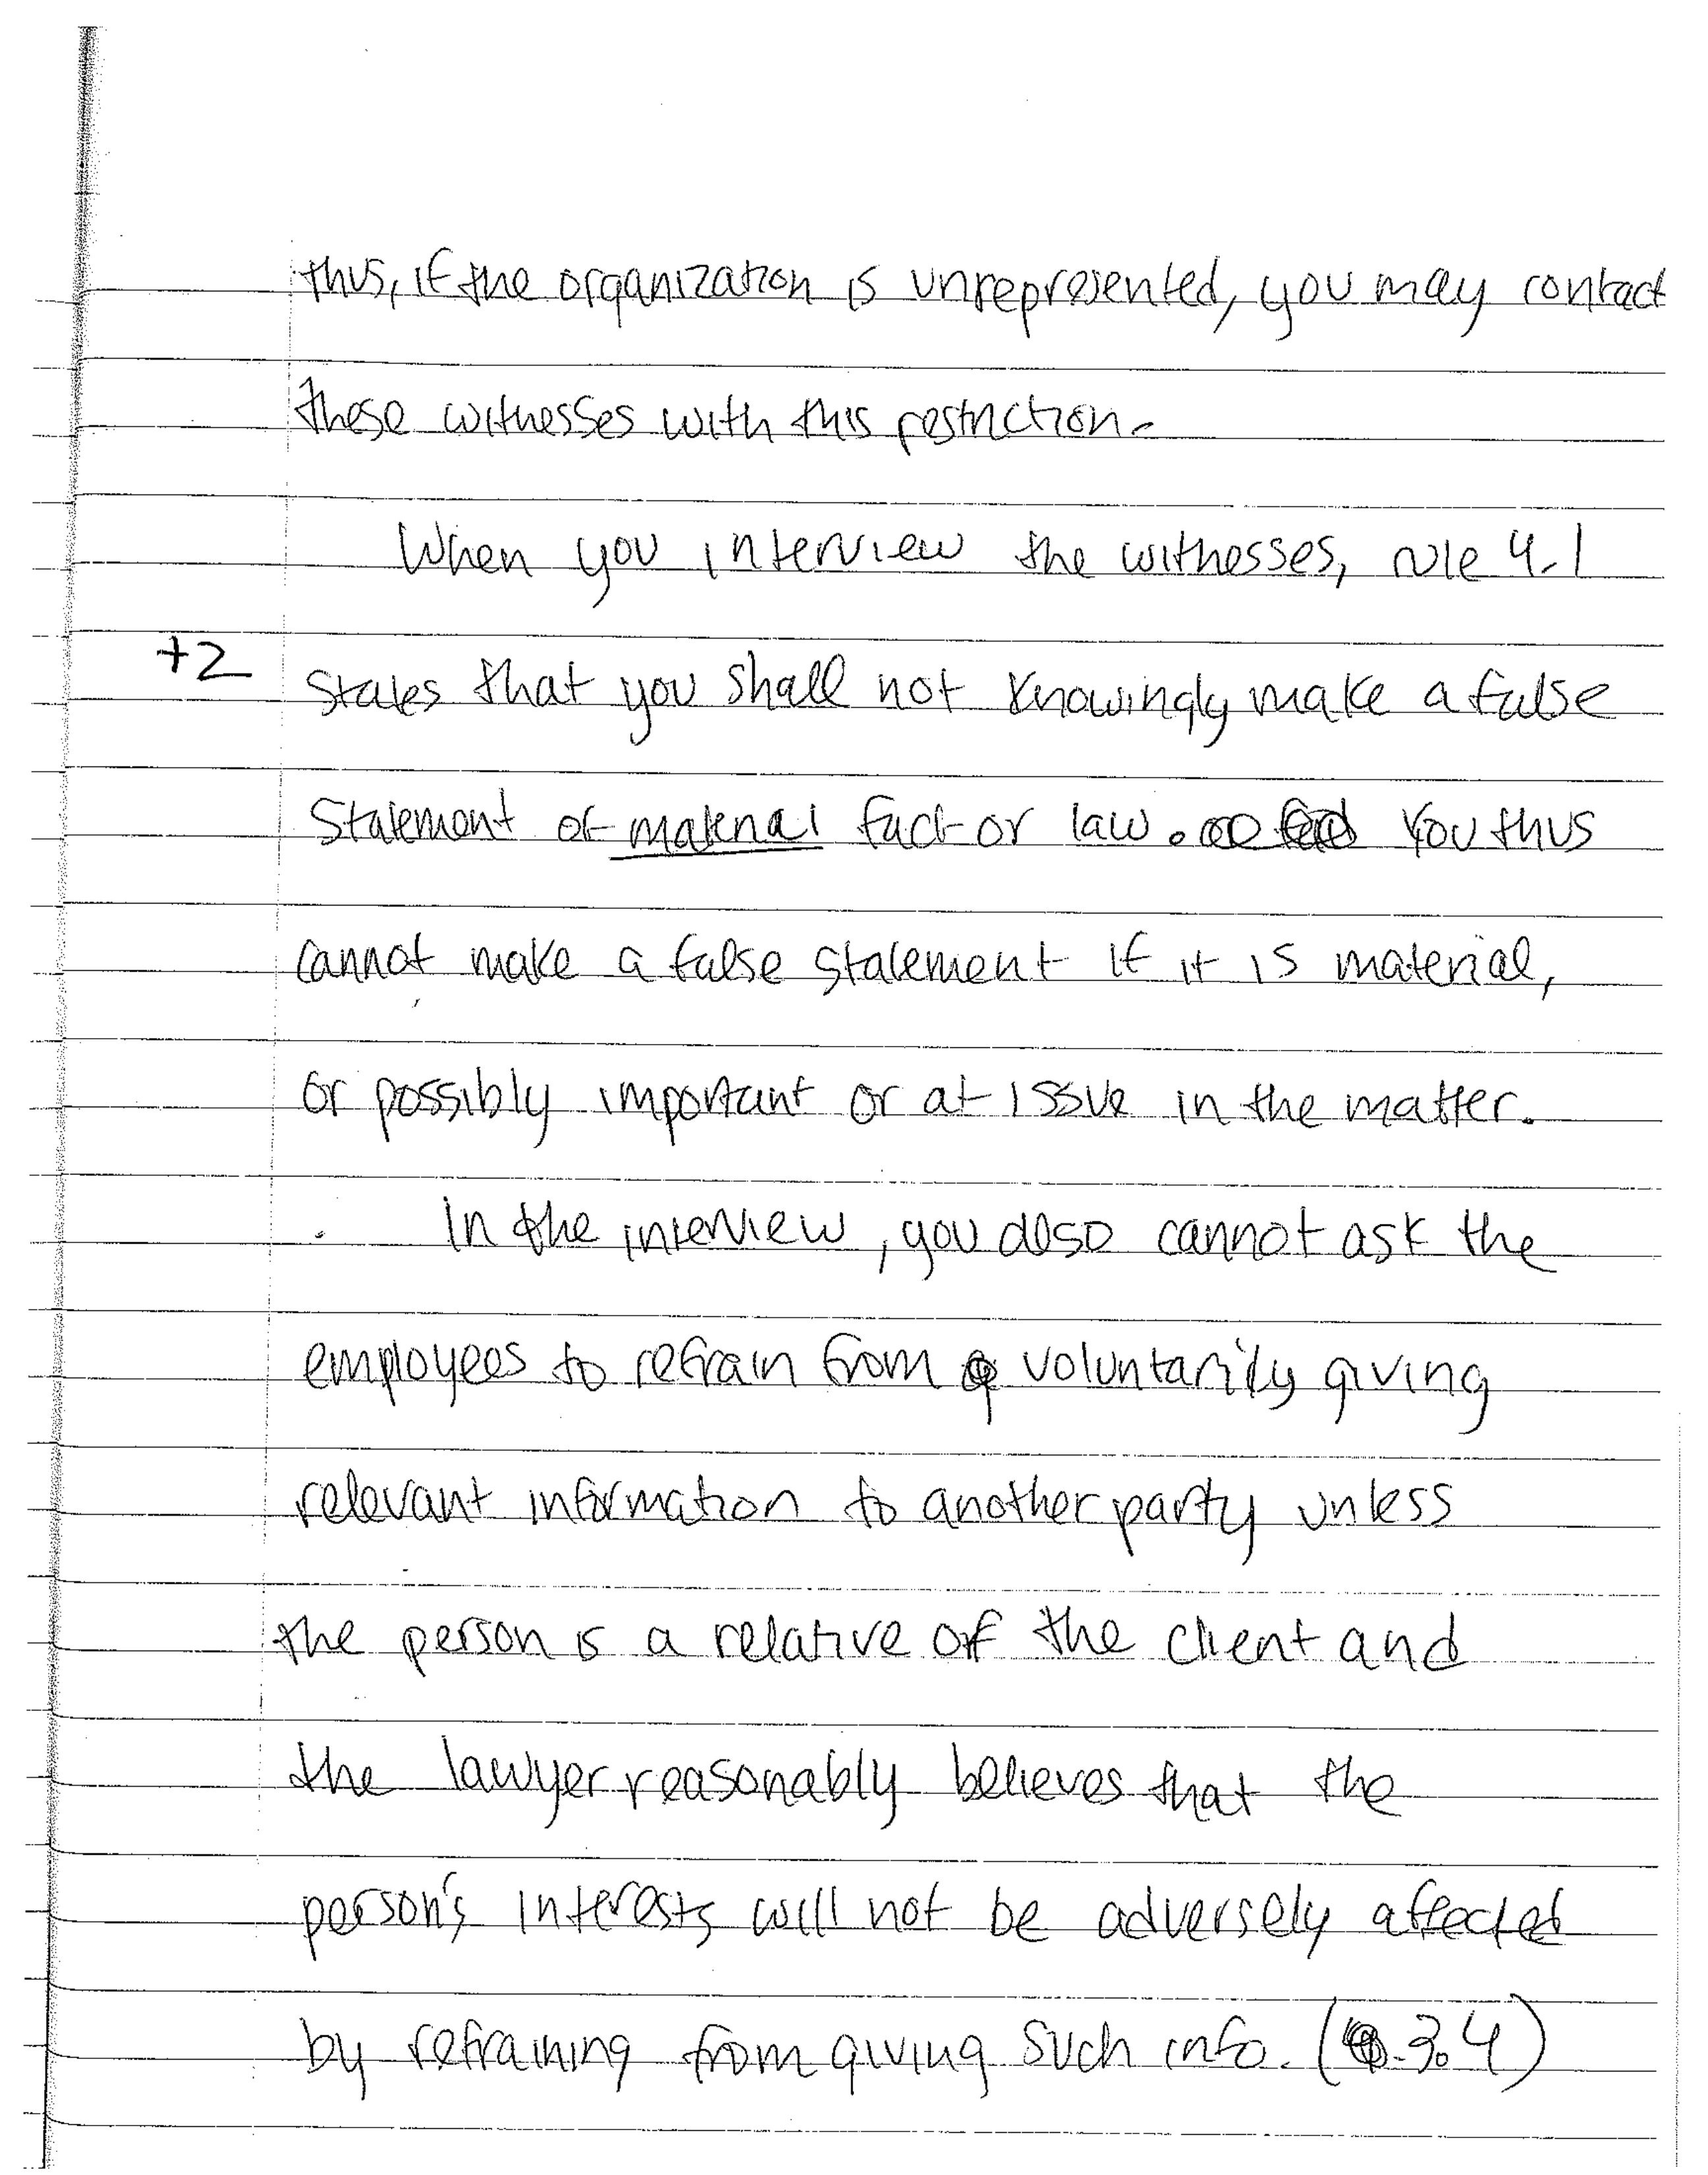 thus, if the organization is unrepresented, you may contact
these witnesses with this restriction.
When you interview the witnesses, rule 4.1
+2
states that you shall not knowingly make a false
statement of material fact or law. You thus
cannot make a false statement if it is material,
or possibly important or at issue in the matter.
In the interview, you also cannot ask the
employees to refrain from voluntarily giving
relevant information to another party unless
the person is a relative of the client and
the lawyer reasonably believes that the
person's interests will not be adversely affected
by refraining from giving such info. (3.4)